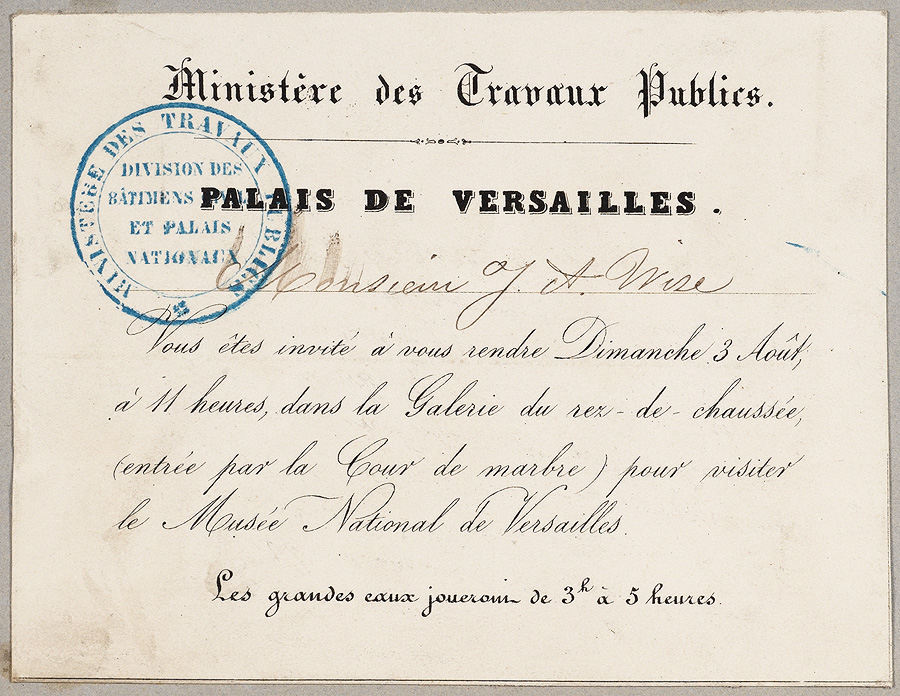 Ministère des Travaux Publics.
MINISTÈRE DES TRAVAUX PUBLICS
DIVISION DES
BÂTIMENS
ET PALAIS
NATIONAUX
PALAIS DE VERSAILLES.
Monsieur J. A. Wise
Vous êtes invité à vous rendre Dimanche 3 Août,
à 11 heures, dans la Galerie du rez-de-chaussée,
(entrée par la Cour de marbre) pour visiter
le Musée National de Versailles.
Les grandes eaux joueront de 3h à 5 heures.